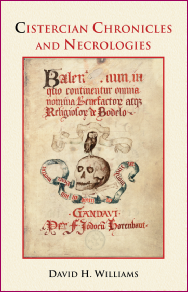 CISTERCIAN CHRONICLES
AND NECROLOGIES
quo continentur omnia
nomina Benefactor
Religiosor de Bodelo
GANDAVI
Per F. Jodocū Horenbaut
DAVID H. WILLIAMS